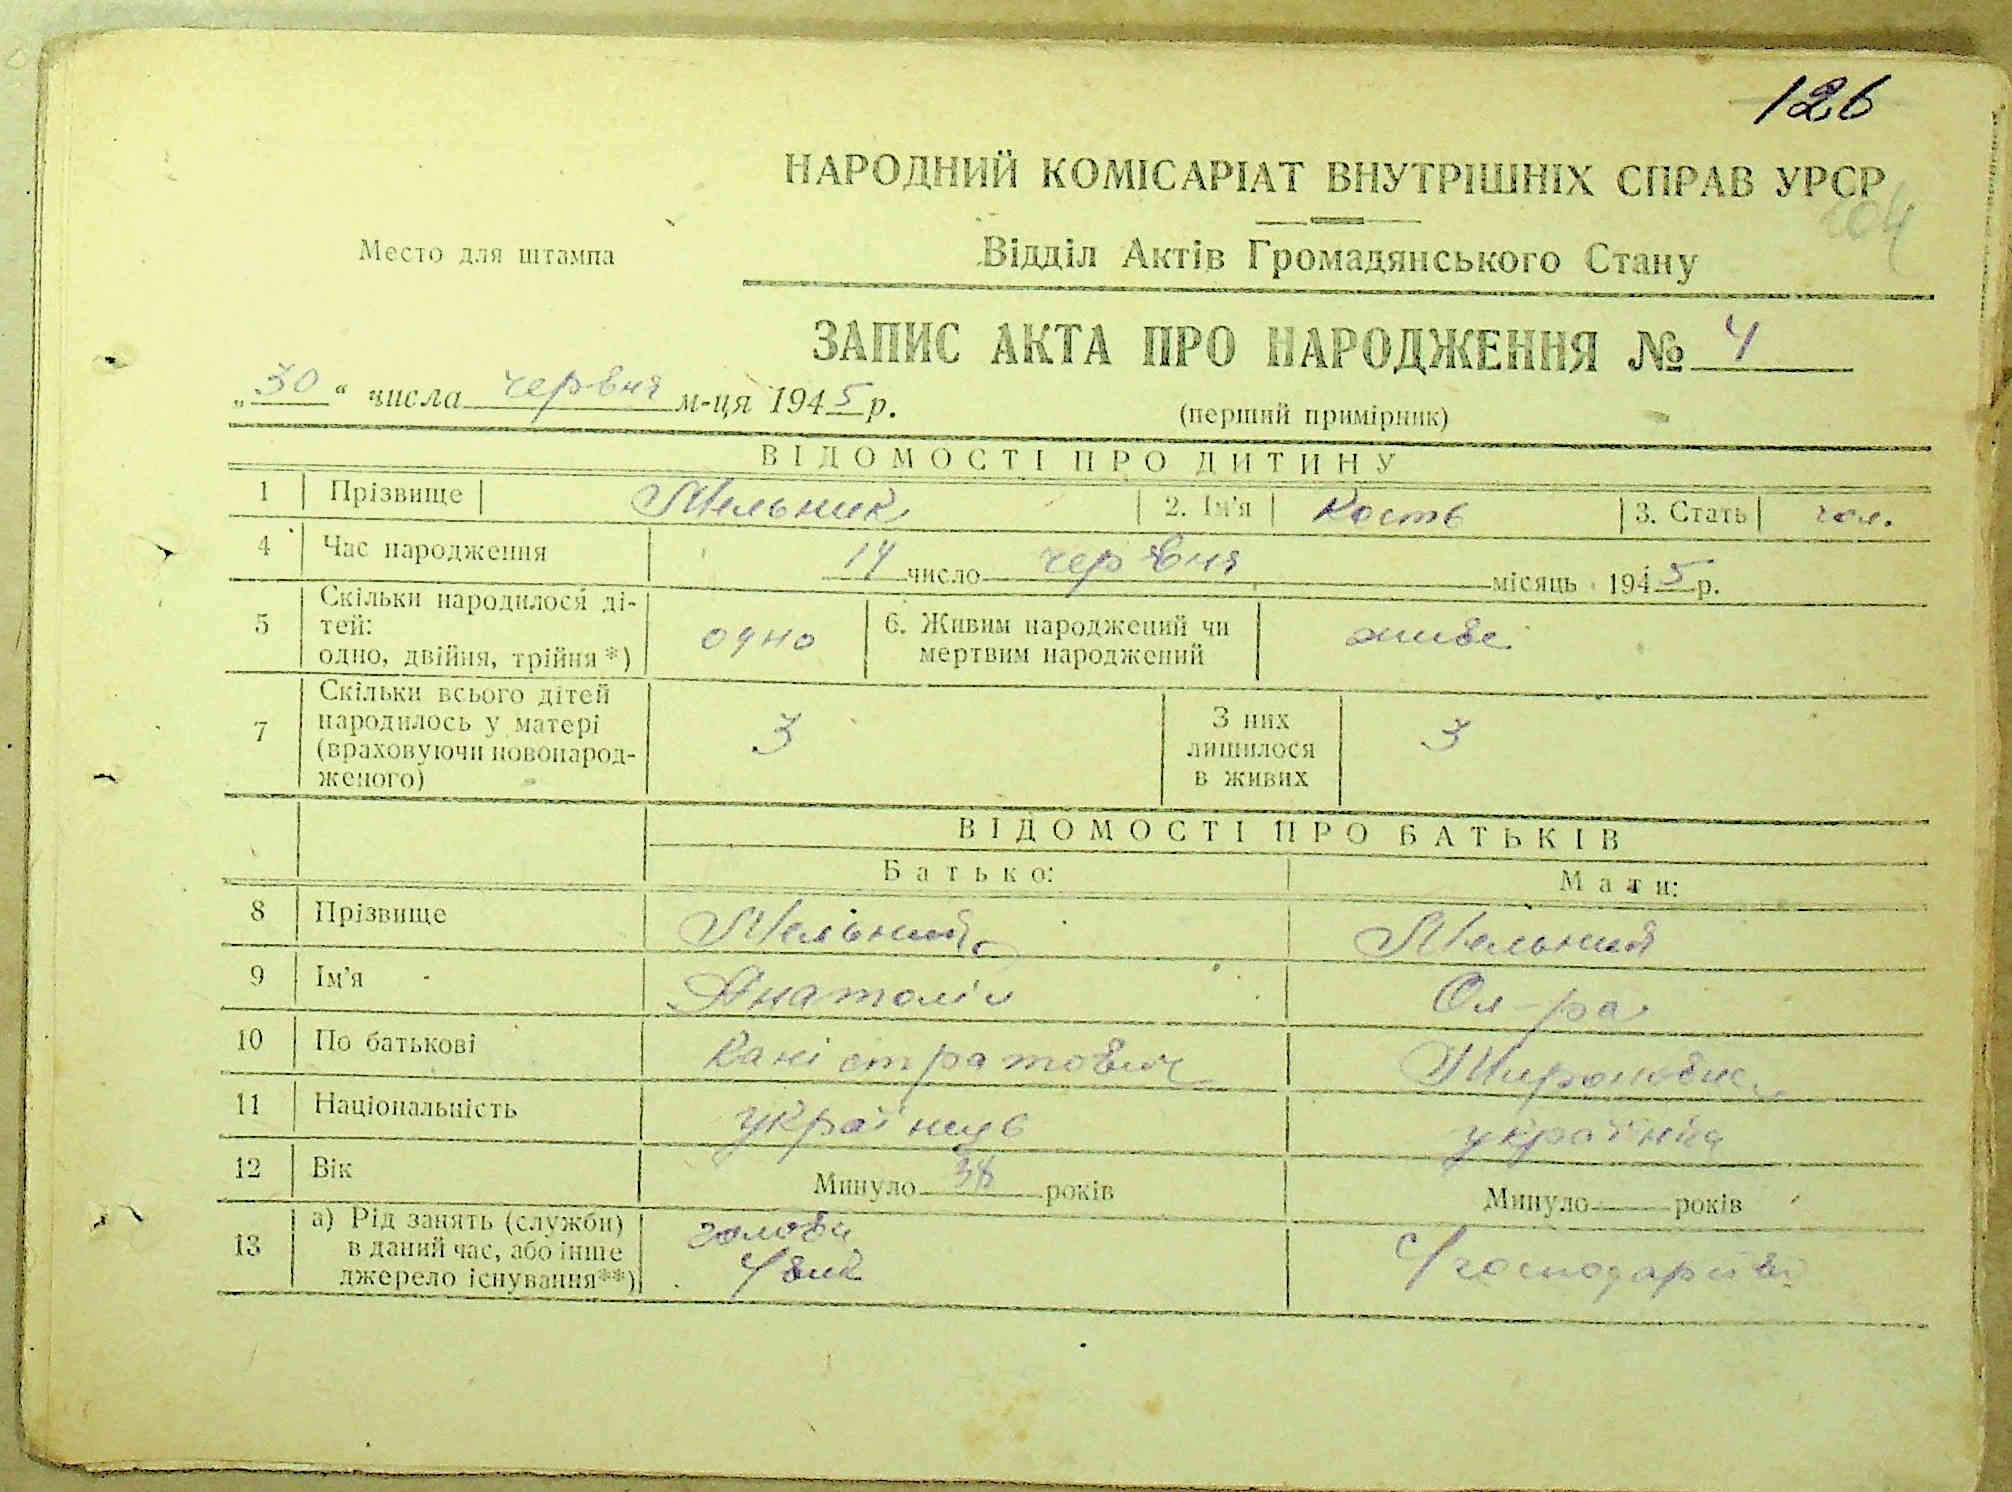 126
НАРОДНИЙ КОМІСАРІАТ ВНУТРІШНІХ СПРАВ УРСР
204
Место для штампа
Відділ Актів Громадянського Стану
ЗАПИС АКТА ПРО НАРОДЖЕННЯ № 4
„30“ числа червня м-ця 1945 р.
(перший примірник)
ВІДОМОСТІ ПРО ДИТИНУ
1 Прізвище Мельник 2. Ім'я Кость 3. Стать чол.
4 Час народження 14 число червня місяць 1945 р.
5 Скільки народилося ді-
тей:
одно, двійня, трійня *) одно
6. Живим народжений чи
мертвим народжений живе
7 Скільки всього дітей
народилось у матері
(враховуючи новонарод-
женого) 3
З них
лишилося
в живих 3
ВІДОМОСТІ ПРО БАТЬКІВ
Батько: Мати:
8 Прізвище Мельник Мельник
9 Ім'я Анатолій Ол-ра
10 По батькові Каністратович Миронов
11 Національність українець українка
12 Вік Минуло 38 років Минуло років
13 а) Рід занять (служби)
в даний час, або інше
джерело існування**) голова
с/господарстві